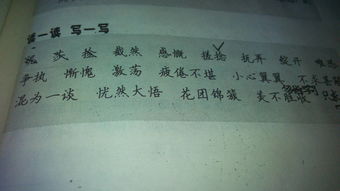 读一读 写一写
茨 捡 截然 感慨 搓揉 抚弄 绽开
争执 惭愧 激荡 疲倦不堪 小心翼翼
混为一谈 恍然大悟 花团锦簇 美不胜收